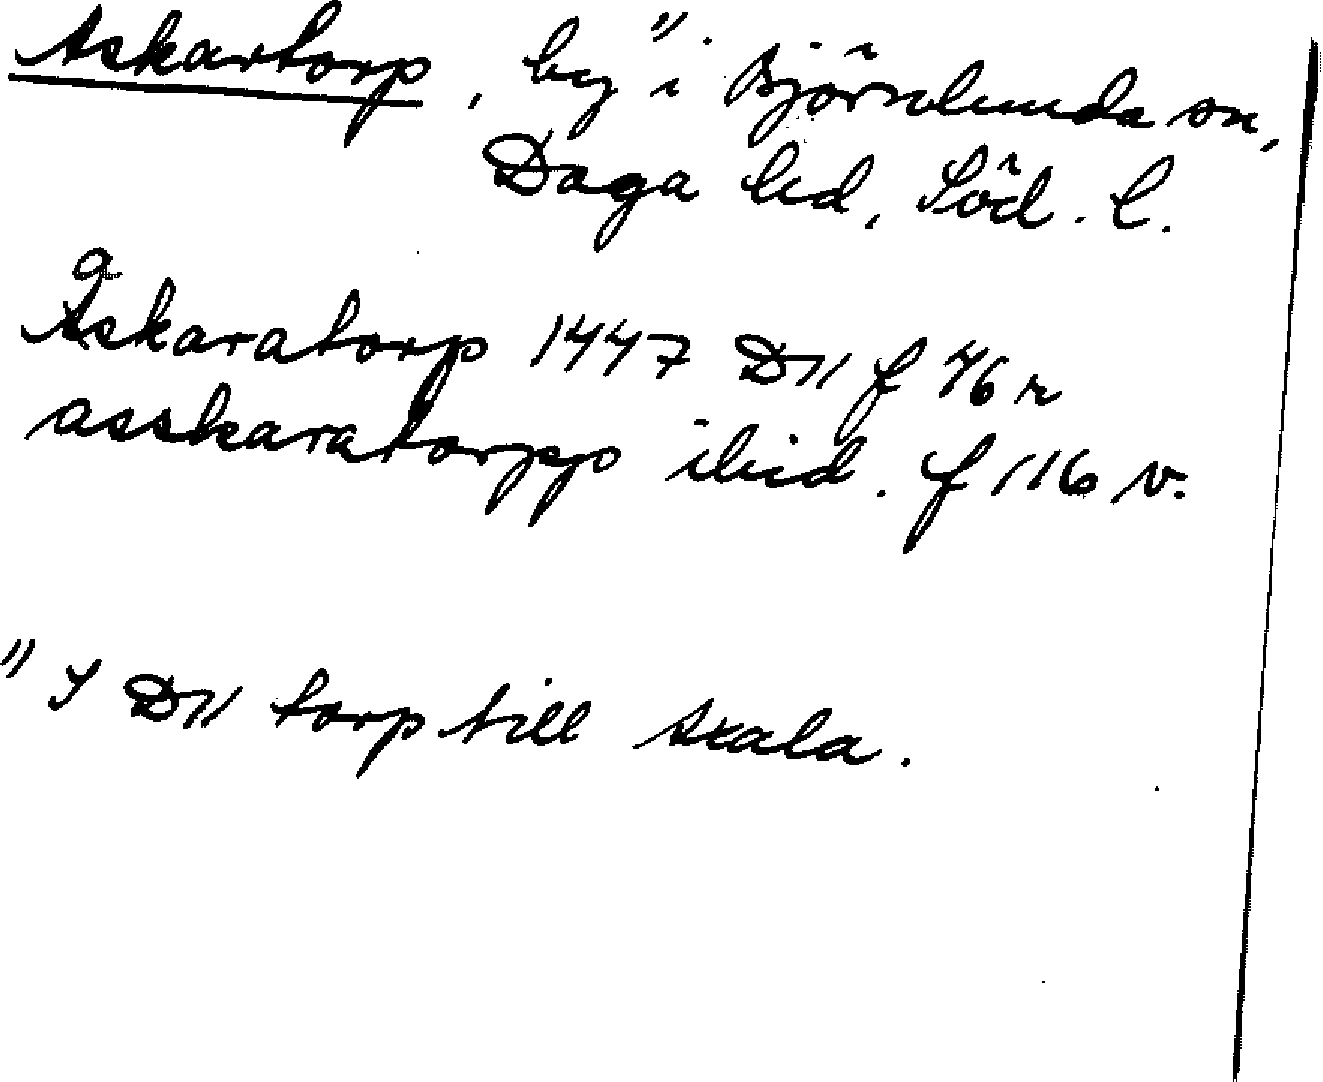 Askartorp, by" i Björnlunda sn,
Daga hd, Söd. l.
Åskaratorp 1447 D11 f 46 r
asskaratorpp ibid. f 116 v.
" I D11 torp till Skala.